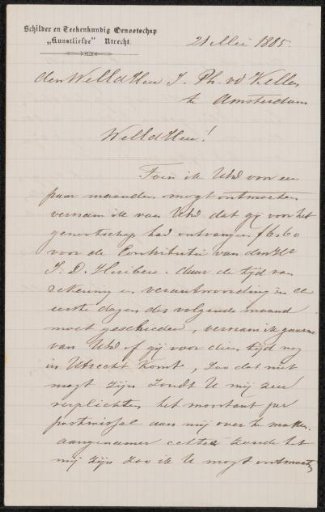 Schilder en Teekenkundig Genootschap
„Kunstliefde" Utrecht.
21 Mei 1885.
den WelEdHeer J. Ph. vd Kellen
te Amsterdam
WelEdHeer!
Toen ik UEd voor een
paar maanden mogt ontmoeten
vernam ik van UEd dat gij voor het
genootschap had ontvangen f 6.60
voor de Contributie van den
J. D. Huibers. daar de tijd van
rekening en verantwoording in de
eerste dagen der volgende maand
moet geschieden, vernam ik gaarne
van UEd of gij voor dien tijd nog
in Utrecht komt, zoo dat niet
mogt zijn zoudt U mij zeer
verplichten het montant per
postwissel aan mij over te maken.
aangenamer echter zoude het
mij zijn zoo ik U mogt ontmoeten